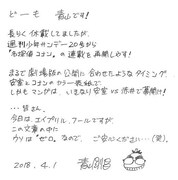 どーも 青山です!
長らく休載してましたが、
週刊少年サンデー20号から
「名探偵コナン」の連載を再開しやす!
まるで劇場版の公開に合わせたようなタイミング、
安室とコナンのカラー表紙で、
しかもマンガは、いきなり安室 vs 沖矢で幕開け!
…皆さん、
今日は、エイプリル・フールですが、
この文章の中に
ウソは“ゼロ”なので、ご安心ください…(笑)。
2018.4.1 青山剛昌